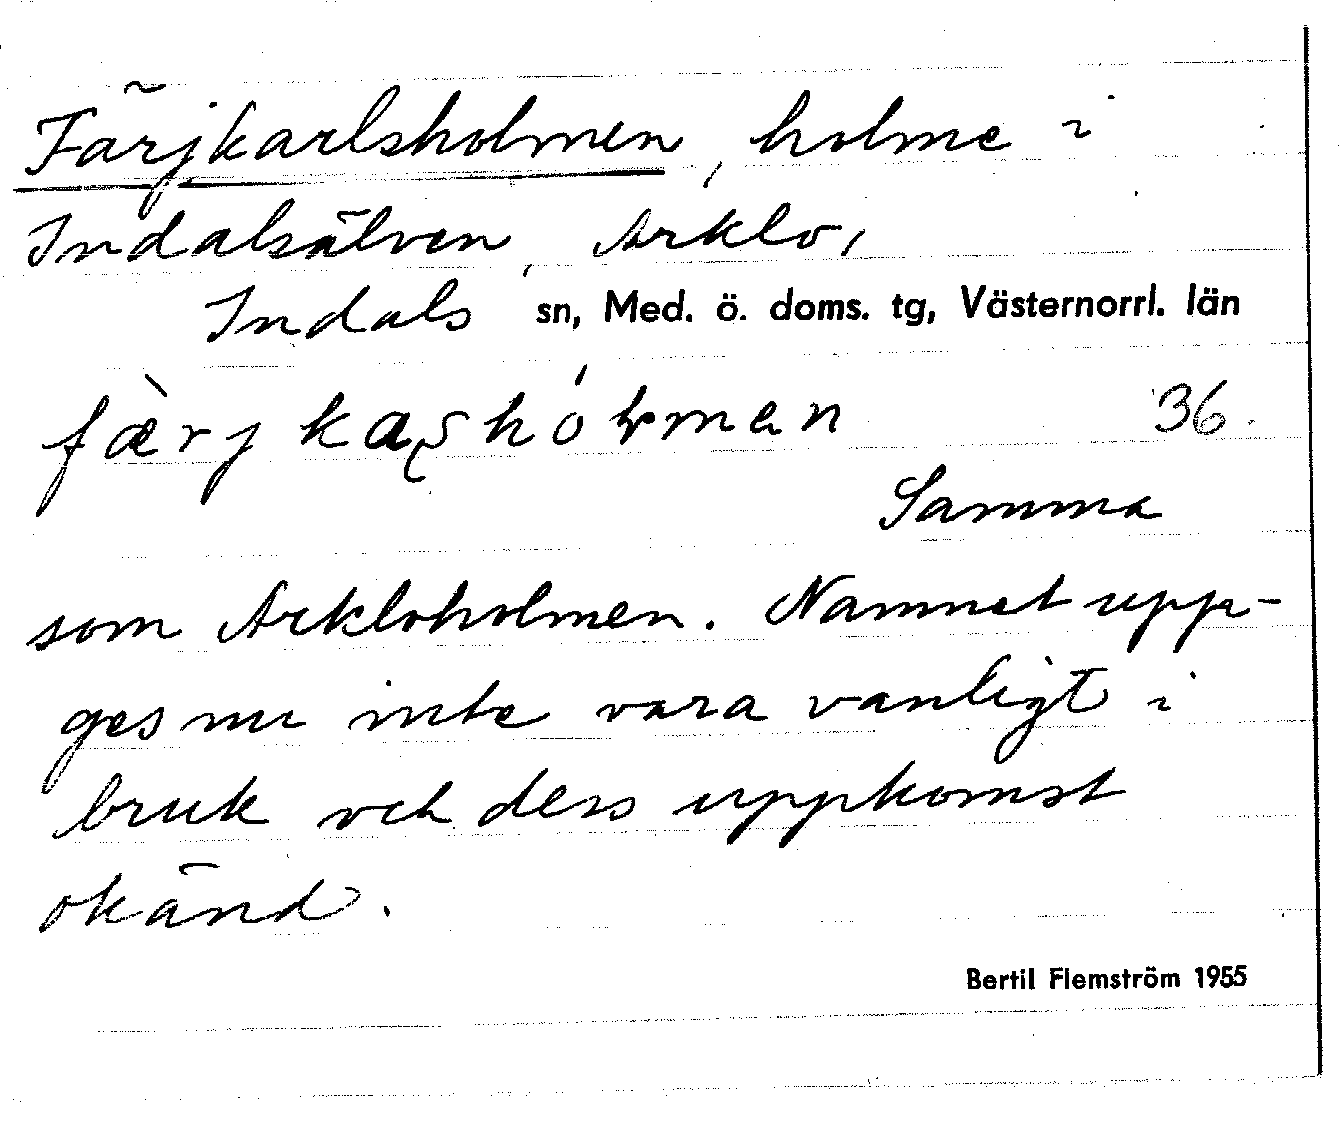 Färjkarlsholmen, holme i
Indalsälven, Arklo,
Indals sn, Med. ö. doms. tg, Västernorrl. län
fæ̀rjkaʂhóɫmen 36.
Samma
som Arkloholmen. Namnet upp-
ges nu inte vara vanligt i
bruk och dess uppkomst
okänd.
Bertil Flemström 1955